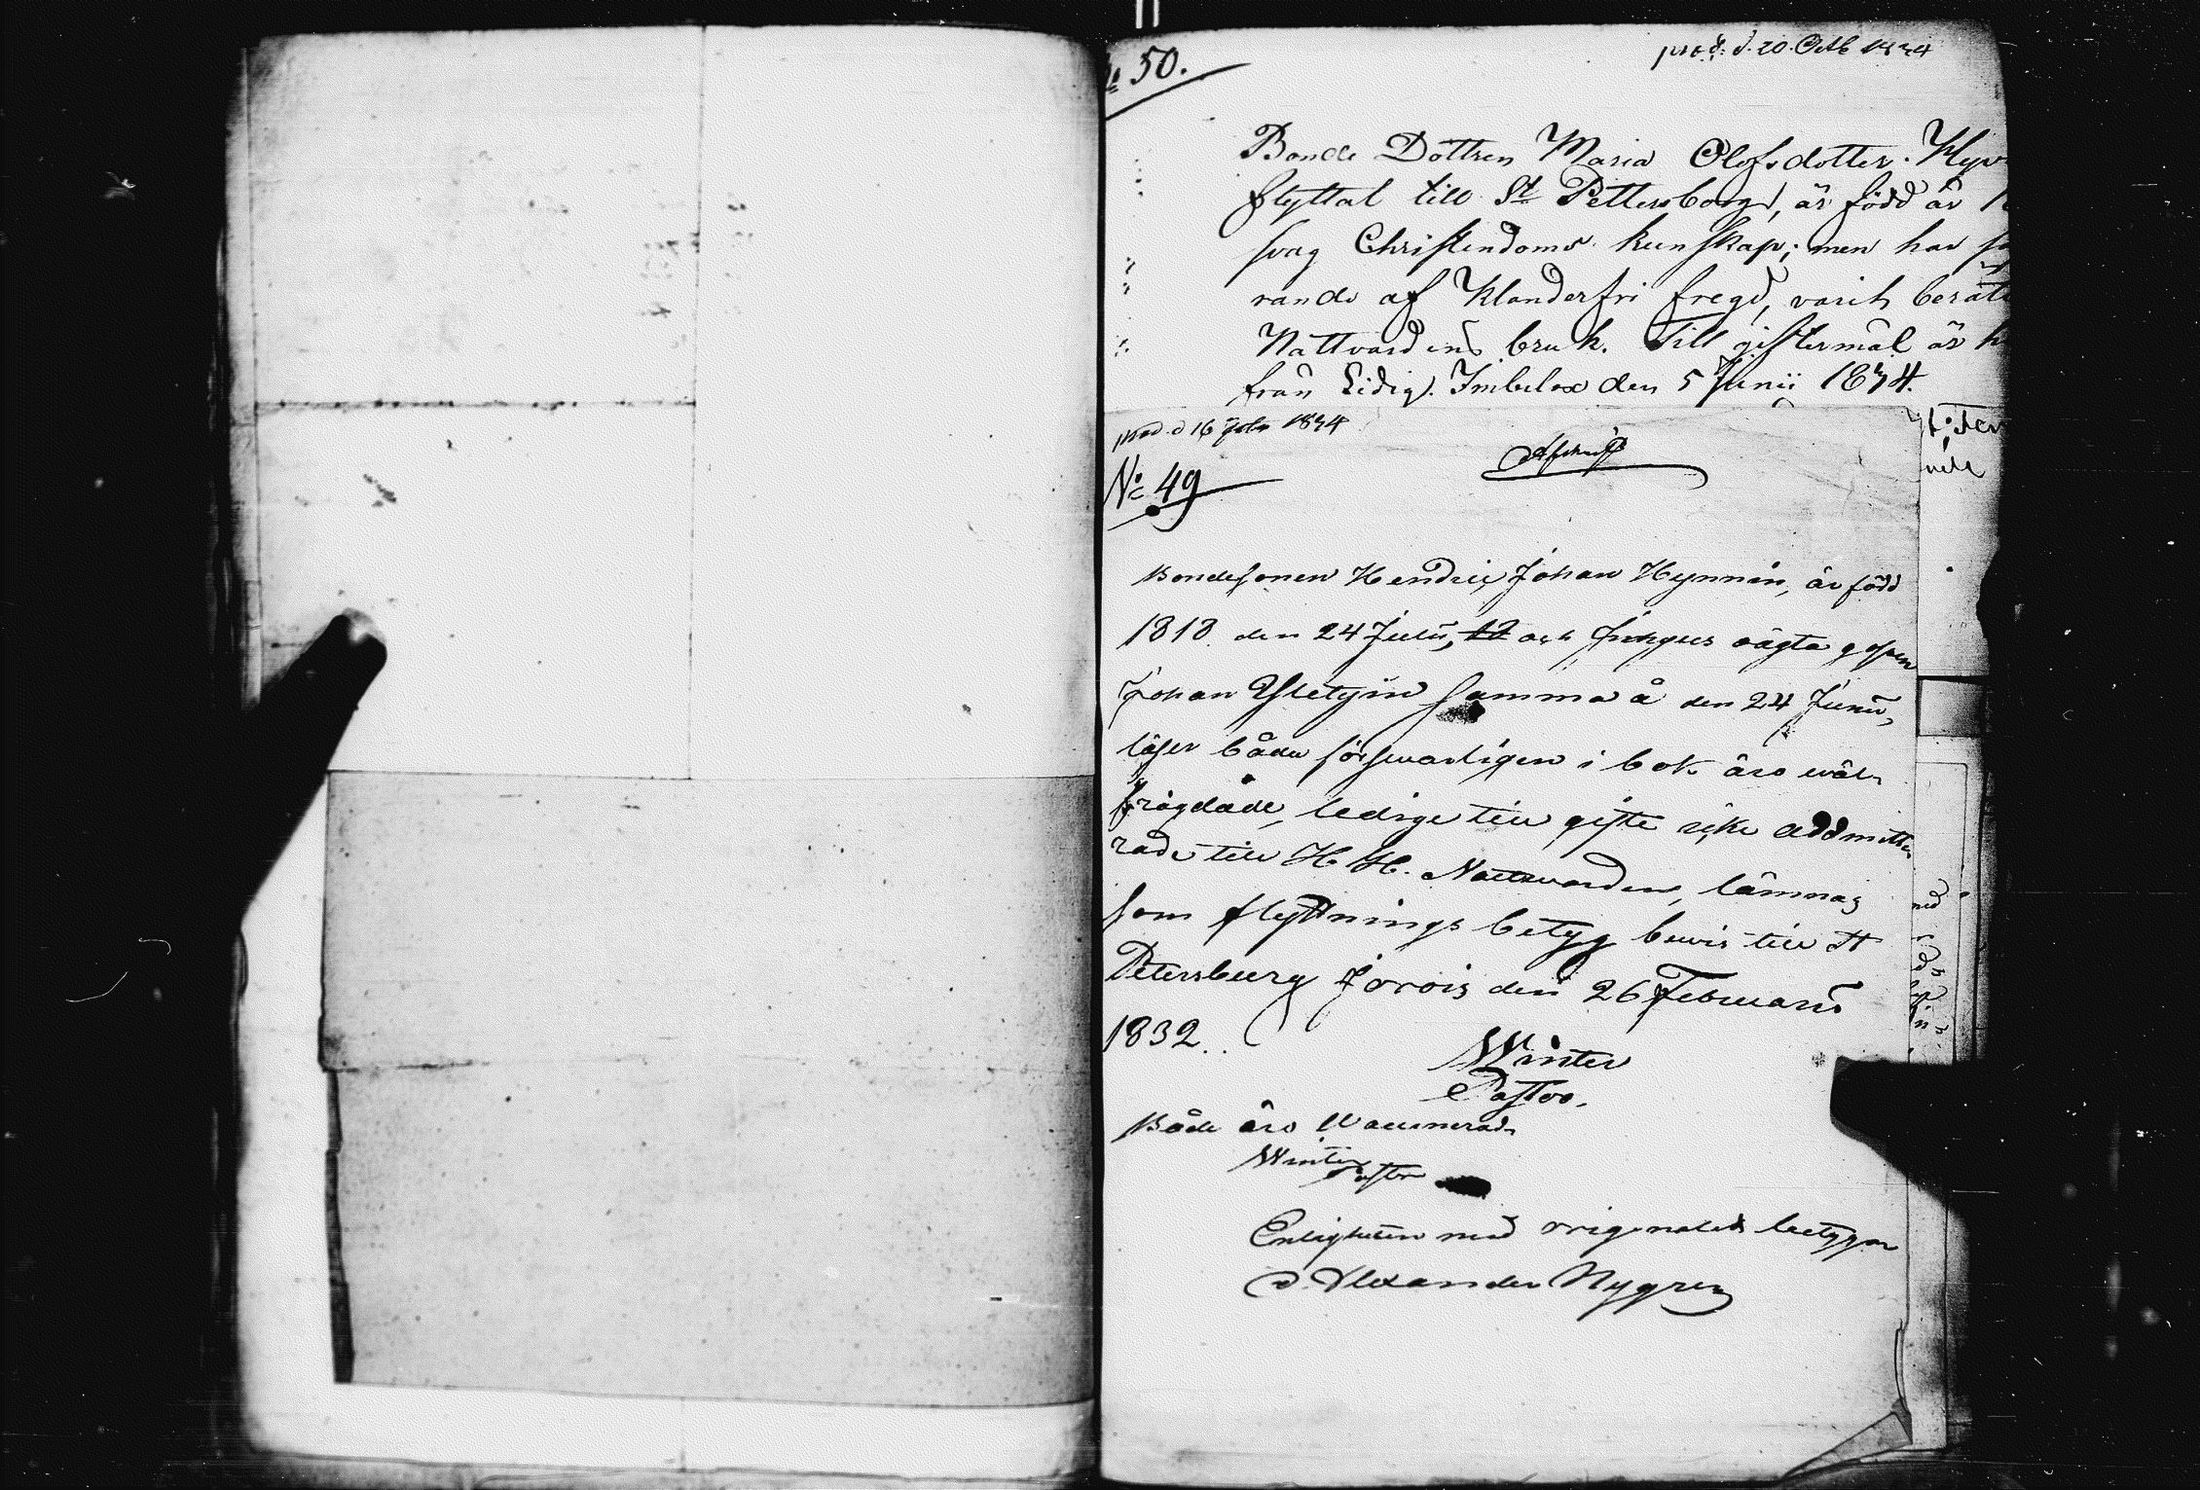 № 50.
prod. d. 20. Octb 1834
Bonde Dottren Maria Olofsdotter Hyv
flyttat till St Pettersborg, är född år 1
svag Christendoms kunskap; men har
rande af Klanderfri fregd, varit berät
Nattvardens bruk. Till giftermål är h
från Ledig. Imbilax den 5 Junii 1834.
prod. d 16 1834
Afskrift
№ 49
Bondesonen Hendric Johan Hynnin, är född
1818 den 24 Julii, 12 och ägta gossen
Johan samma å den 24 Junii,
läser både försvarligen i bok äro wäl
frägdade, ledige till gifte icke admitte
rade till H. H. Nattwarden, lämnas
som flyttnings betyg bewis till St
Petersburg Jorois den 26 Februarii
1832.
Winter
Pastor.
Både äro Vaccinerade
Winter
Pastor
Enligheten med originalet betygar
Alexander Nygren